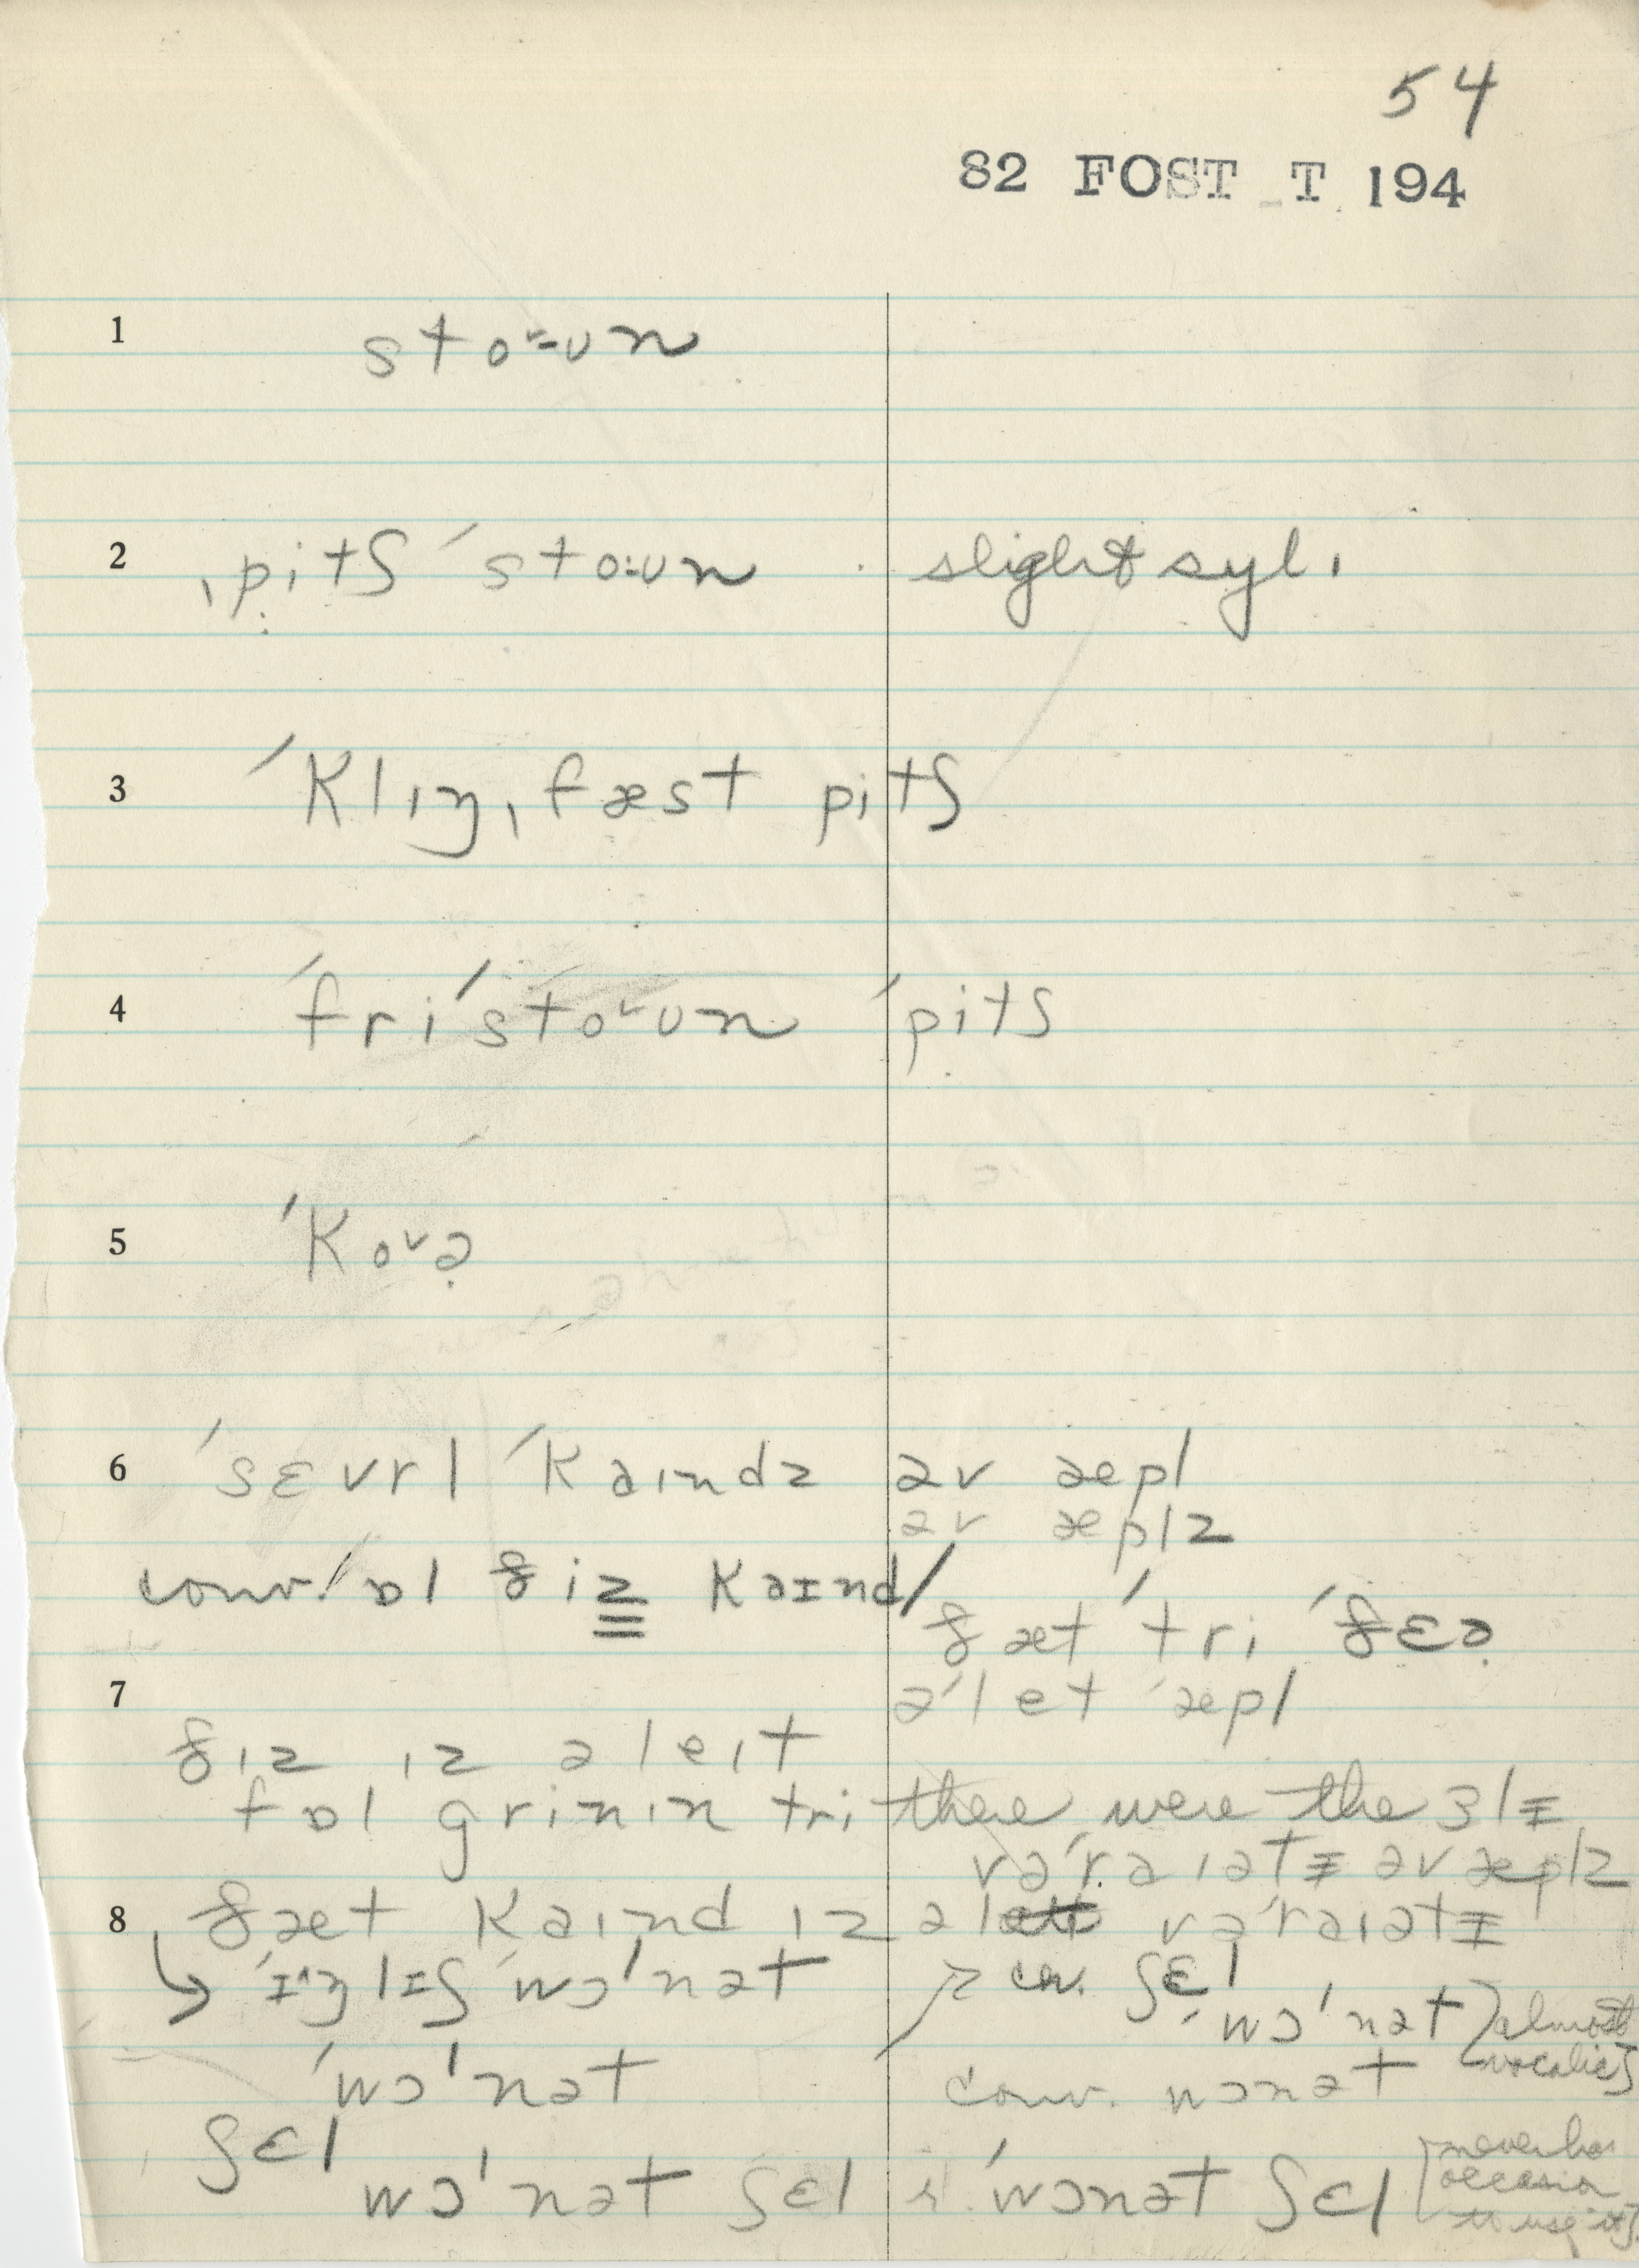 54
82 FOST T 194
1 stoˇ-ʊn
2 ˌpitʃ ˈsto:ʊn slight syl.
3 ˈklɪŋˌfæst pitʃ
4 ˈfriˈstoˇʊn ˈpitʃ
5 ˈkoˇə̣
6 ˈsɛvrl ˈkaɪndz əv æpl
əv æplz
conv. ɒl ðiz kaɪnd/
ðæt ˈtri ˈðɛə̣
7 əˈlet ˈæpl
ðɪz ɪz ə leɪt
fɒl grinɪn tri there were the ɜlɪ
vəˈraɪətɪ əv æplz
8 ðæt kaɪnd ɪz ə vəˈraɪətɪ
ˈɪ^ŋlɪʃ ˈwɔˈnət cv. ʃɛl
ˈwɔˈnət] almost
vocalic]
ˈwɔˈnət conv. wɔnət
ʃɛl
wɔˈnət ʃɛl r. ˈwɔnət ʃɛl [never has
occasion
to use it]